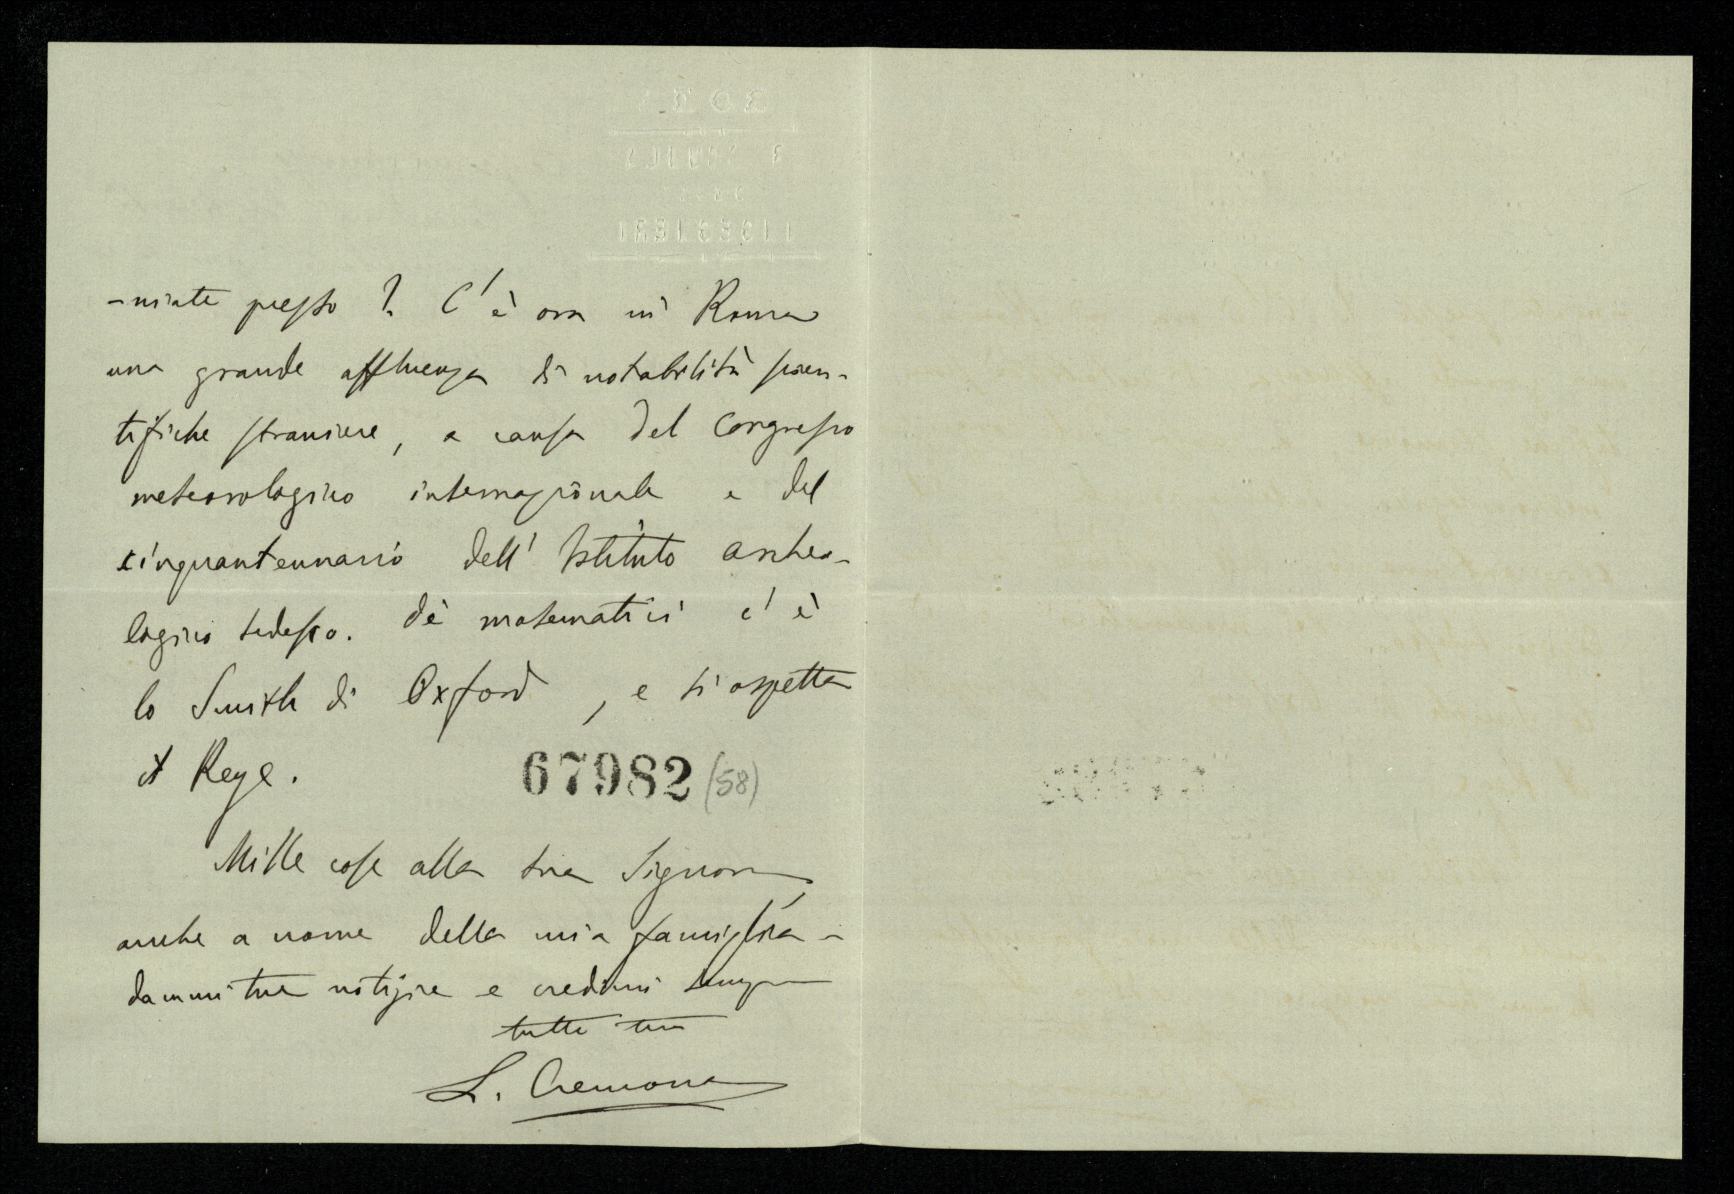 -niate presto? C'è ora in Roma
una grande affluenza di notabilità scien-
tifiche straniere, a causa del Congresso
meteorologico internazionale e del
cinquantennario dell'Istituto archeo-
logico tedesco. De' matematici c'è
lo Smith di Oxford, e si aspetta
il Reye.
67982 (58)
Mille cose alla tua Signora,
anche a nome della mia famiglia -
dammi tue notizie e credimi sempre
tutto tuo
L. Cremona